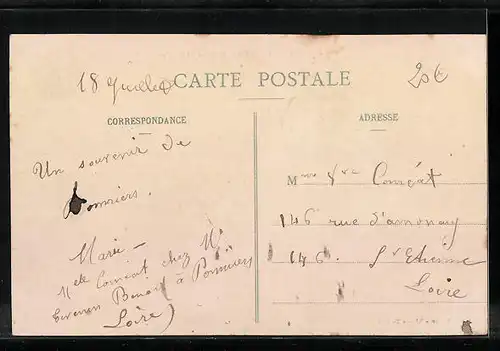 18 Juillet
CARTE POSTALE
20€
CORRESPONDANCE
ADRESSE
Un souvenir de
Pommiers.
Marie –
Melle Comeat chez Mr
Benoit à Pommiers
Loire)
Mme Vve Comeat
146 rue d'annonay
146. St Etienne
Loire